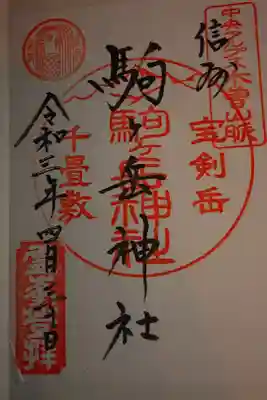 中央アルプス木曽山脈
信州
宝剣岳
駒ヶ岳神社
駒ヶ岳神社
千畳敷
令和三年四月
日